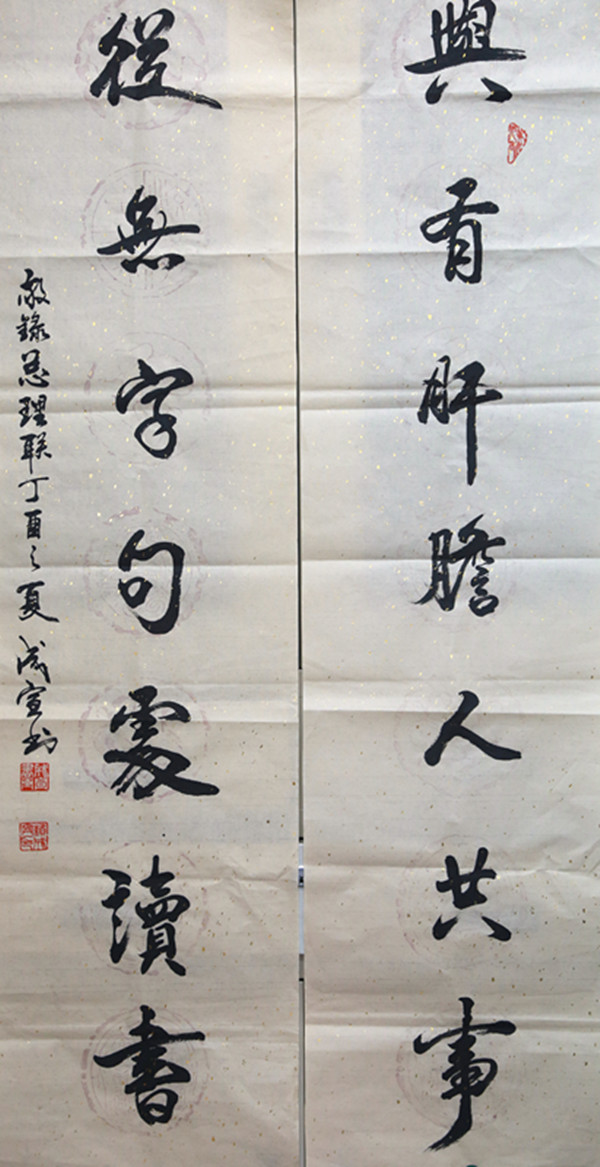 與有肝膽人共事
從無字句處讀書
敬錄总理联丁酉之夏 成宣书